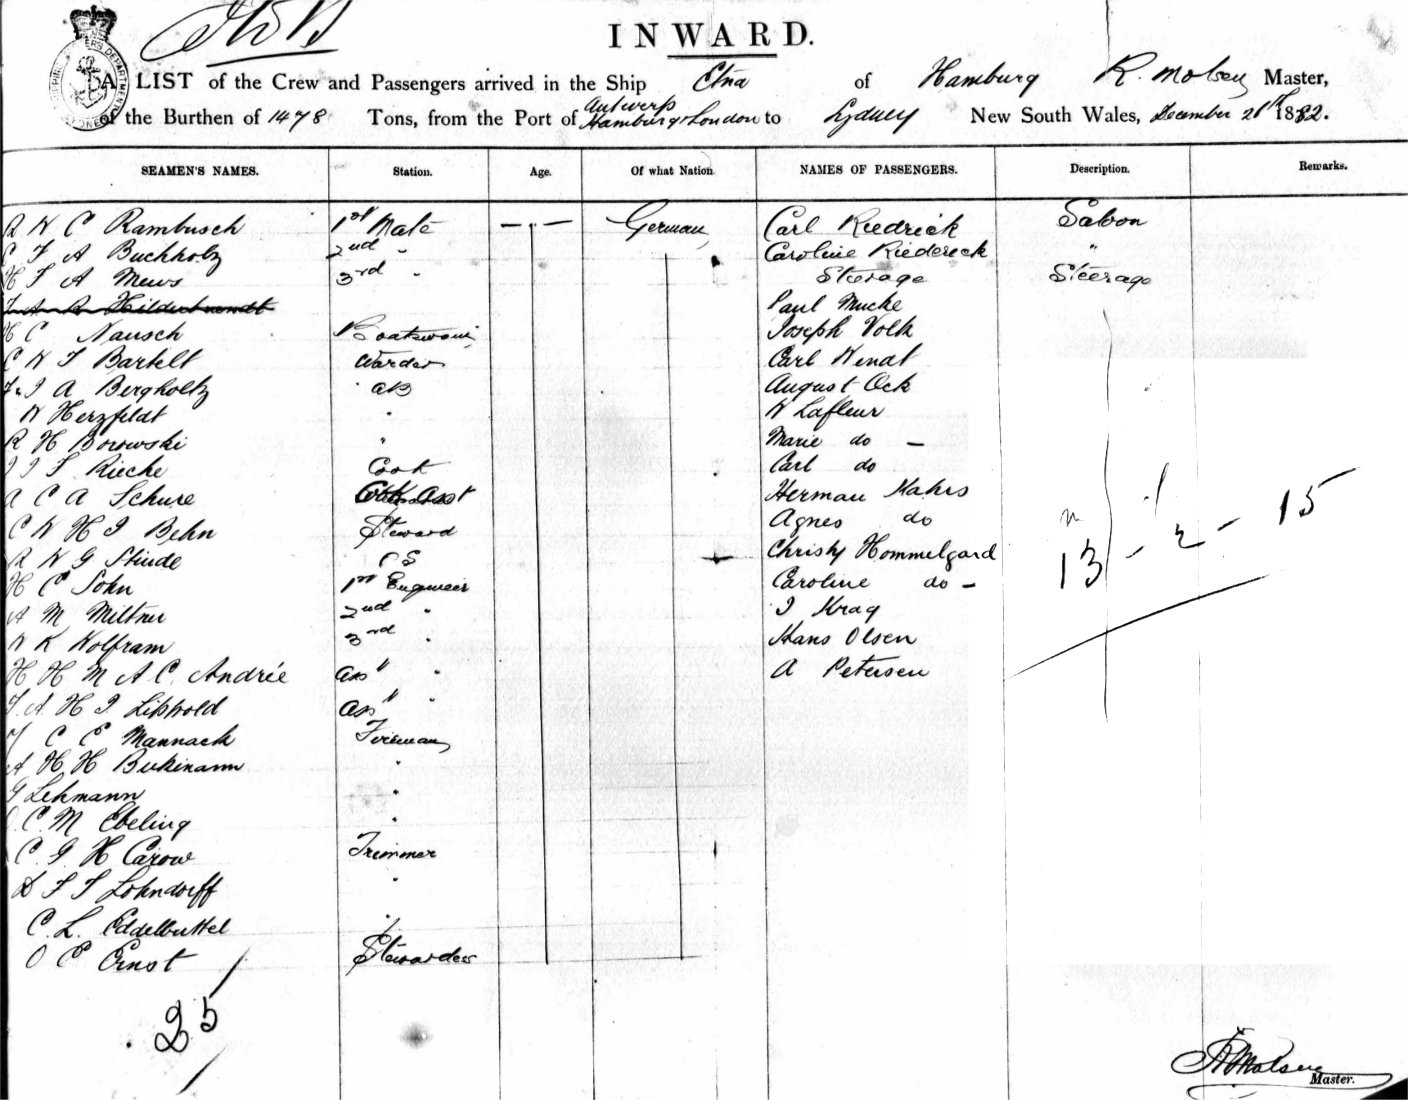 INWARD.
A LIST of the Crew and Passengers arrived in the Ship Etna of Hamburg R. Molsen Master,
of the Burthen of 1478 Tons, from the Port of Antwerp Hamburg & London to Sydney New South Wales, December 21st 1882.
SEAMEN'S NAMES. Station. Age. Of what Nation NAMES OF PASSENGERS. Description. Remarks.
R W C Rambusch 1st Mate — " — German Carl Riedrick Saloon
C F A Buchholz 2nd " Caroline Riedereck "
H F A Mews 3rd " Sterage Steerage
Hilderbrandt Paul Mucke
H C Nausch Boatswain Joseph Volk
C W F Bartelt Carl Wendt
F. J A Bergholtz AB August Ock
W Herzfeldt " W Lafleur
R H Borowski " Marie do —
J J F Rieche Cook Carl do
A C A Schure Cook Asst Herman Kahrs
C W H J Behn Steward Agnes do
R W G Stinde P S Christy Hommelgard
H C Sohn 1st Engineer Caroline do —
A M Miltner 2nd " J Krag
W K Wolfram 3rd " Hans Olsen
H H M A C. Andrée Asst " A Petersen
F. A H J Lippold Asst "
F C C Mannack Fireman
A H H Bukinann "
G Lehmann "
C. M Ebeling "
C. J H Carow Trimmer
D F F Lohndorff "
C. L. Eddelbuttel "
O C Ernst Stewardess
13 - 2 - 15
25
R Molsen
Master.